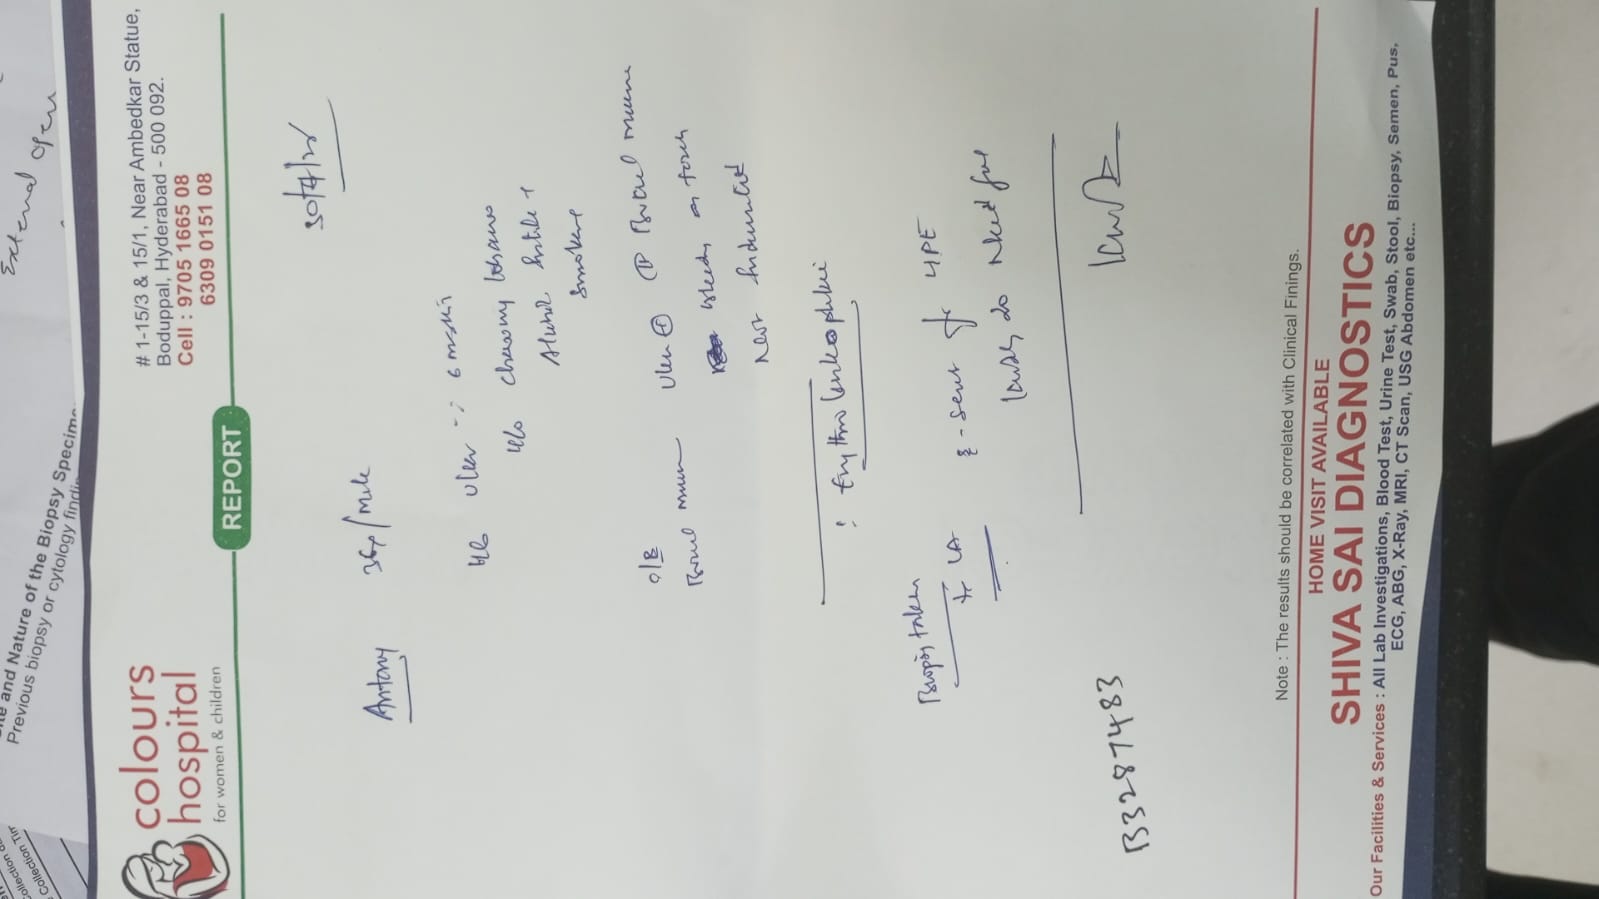 External open
Site and Nature of the Biopsy Specime
Previous biopsy or cytology findin
Collection
Collection Tim
colours
hospital
for women & children
# 1-15/3 & 15/1, Near Ambedkar Statue,
Boduppal, Hyderabad - 500 092.
Cell : 9705 1665 08
6309 0151 08
REPORT
Antony 36y/male
H/o ulcer 6 months
H/o chewing tobacco
Alcohol
Smoker
O/E
Buccal mucosa ulcer + Buccal mucosa
bleeds on touch
Non indurated
: Erythroleukoplakia
Biopsy taken
LA & sent for HPE
Kindly do need ful
B3287483
Note : The results should be correlated with Clinical Finings.
HOME VISIT AVAILABLE
SHIVA SAI DIAGNOSTICS
Our Facilities & Services : All Lab Investigations, Blood Test, Urine Test, Swab, Stool, Biopsy, Semen, Pus,
ECG, ABG, X-Ray, MRI, CT Scan, USG Abdomen etc...